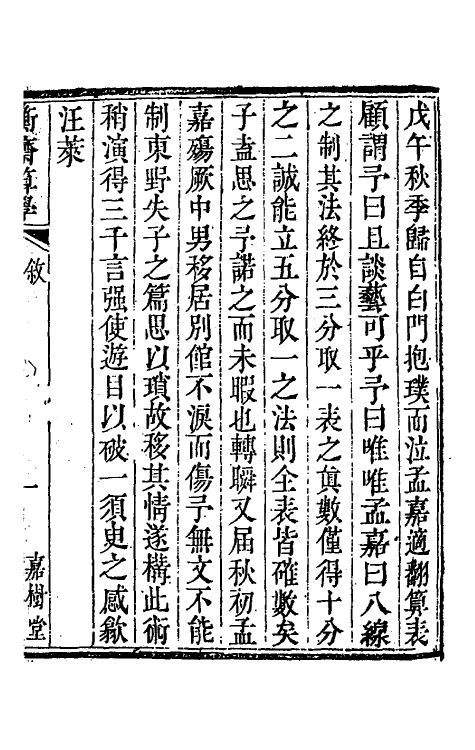 戊午秋季歸自白門抱璞而泣孟嘉適翻算表
顧謂予曰且談藝可乎予曰唯唯孟嘉曰八線
之制其法終於三分取一表之真數僅得十分
之二誠能立五分取一之法則全表皆確數矣
子盍思之予諾之而未暇也轉瞬又屆秋初孟
嘉殤厥中男移居別館不淚而傷予無文不能
制東野失子之篇思以瑣故移其情遂構此術
稍演得三千言强使遊目以破一須臾之感歟
汪萊
衡齋算學
敘
一
嘉樹堂